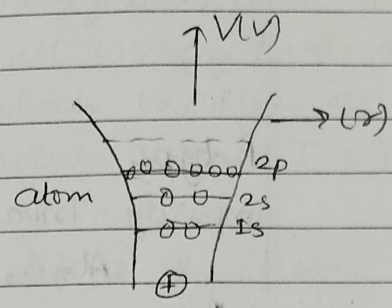 V(r)
(r)
2p
atom 2s
1s
+